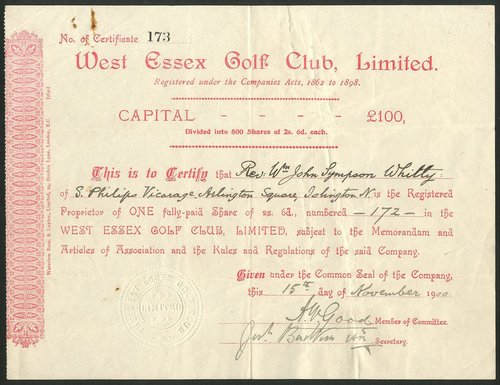 No. of Certificate 173
West Essex Golf Club, Limited.
Registered under the Companies Acts, 1862 to 1898.
CAPITAL - - - - £100,
Divided into 800 Shares of 2s. 6d. each.
This is to Certify that Rev. Wm John Sympson Whitty
of S. Philips Vicarage, Arlington Square, Islington N. is the Registered
Proprietor of ONE fully-paid Share of 2s. 6d., numbered —172— in the
WEST ESSEX GOLF CLUB, LIMITED, subject to the Memorandum and
Articles of Association and the Rules and Regulations of the said Company.
Given under the Common Seal of the Company,
this 15th day of November 1900
Good Member of Committee.
Secretary.
LIMITED